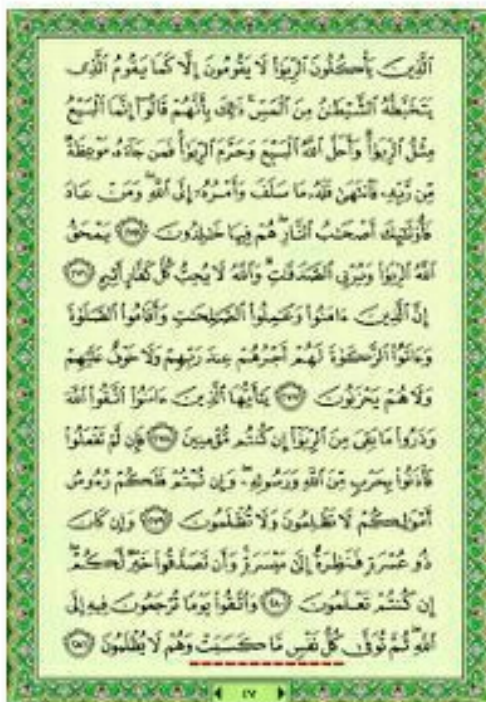 ٱلَّذِينَ يَأْكُلُونَ ٱلرِّبَوٰا۟ لَا يَقُومُونَ إِلَّا كَمَا يَقُومُ ٱلَّذِى
يَتَخَبَّطُهُ ٱلشَّيْطَٰنُ مِنَ ٱلْمَسِّ ۚ ذَٰلِكَ بِأَنَّهُمْ قَالُوٓا۟ إِنَّمَا ٱلْبَيْعُ
مِثْلُ ٱلرِّبَوٰا۟ ۗ وَأَحَلَّ ٱللَّهُ ٱلْبَيْعَ وَحَرَّمَ ٱلرِّبَوٰا۟ ۚ فَمَن جَآءَهُۥ مَوْعِظَةٌ
مِّن رَّبِّهِۦ فَٱنتَهَىٰ فَلَهُۥ مَا سَلَفَ وَأَمْرُهُۥٓ إِلَى ٱللَّهِ ۖ وَمَنْ عَادَ
فَأُو۟لَٰٓئِكَ أَصْحَٰبُ ٱلنَّارِ ۖ هُمْ فِيهَا خَٰلِدُونَ ٢٧٥ يَمْحَقُ
ٱللَّهُ ٱلرِّبَوٰا۟ وَيُرْبِى ٱلصَّدَقَٰتِ ۗ وَٱللَّهُ لَا يُحِبُّ كُلَّ كَفَّارٍ أَثِيمٍ ٢٧٦
إِنَّ ٱلَّذِينَ ءَامَنُوا۟ وَعَمِلُوا۟ ٱلصَّٰلِحَٰتِ وَأَقَامُوا۟ ٱلصَّلَوٰةَ
وَءَاتَوُا۟ ٱلزَّكَوٰةَ لَهُمْ أَجْرُهُمْ عِندَ رَبِّهِمْ وَلَا خَوْفٌ عَلَيْهِمْ
وَلَا هُمْ يَحْزَنُونَ ٢٧٧ يَٰٓأَيُّهَا ٱلَّذِينَ ءَامَنُوا۟ ٱتَّقُوا۟ ٱللَّهَ
وَذَرُوا۟ مَا بَقِىَ مِنَ ٱلرِّبَوٰٓا۟ إِن كُنتُم مُّؤْمِنِينَ ٢٧٨ فَإِن لَّمْ تَفْعَلُوا۟
فَأْذَنُوا۟ بِحَرْبٍ مِّنَ ٱللَّهِ وَرَسُولِهِۦ ۖ وَإِن تُبْتُمْ فَلَكُمْ رُءُوسُ
أَمْوَٰلِكُمْ لَا تَظْلِمُونَ وَلَا تُظْلَمُونَ ٢٧٩ وَإِن كَانَ
ذُو عُسْرَةٍ فَنَظِرَةٌ إِلَىٰ مَيْسَرَةٍ ۚ وَأَن تَصَدَّقُوا۟ خَيْرٌ لَّكُمْ ۖ
إِن كُنتُمْ تَعْلَمُونَ ٢٨٠ وَٱتَّقُوا۟ يَوْمًا تُرْجَعُونَ فِيهِ إِلَى
ٱللَّهِ ۖ ثُمَّ تُوَفَّىٰ كُلُّ نَفْسٍ مَّا كَسَبَتْ وَهُمْ لَا يُظْلَمُونَ ٢٨١
٤٧